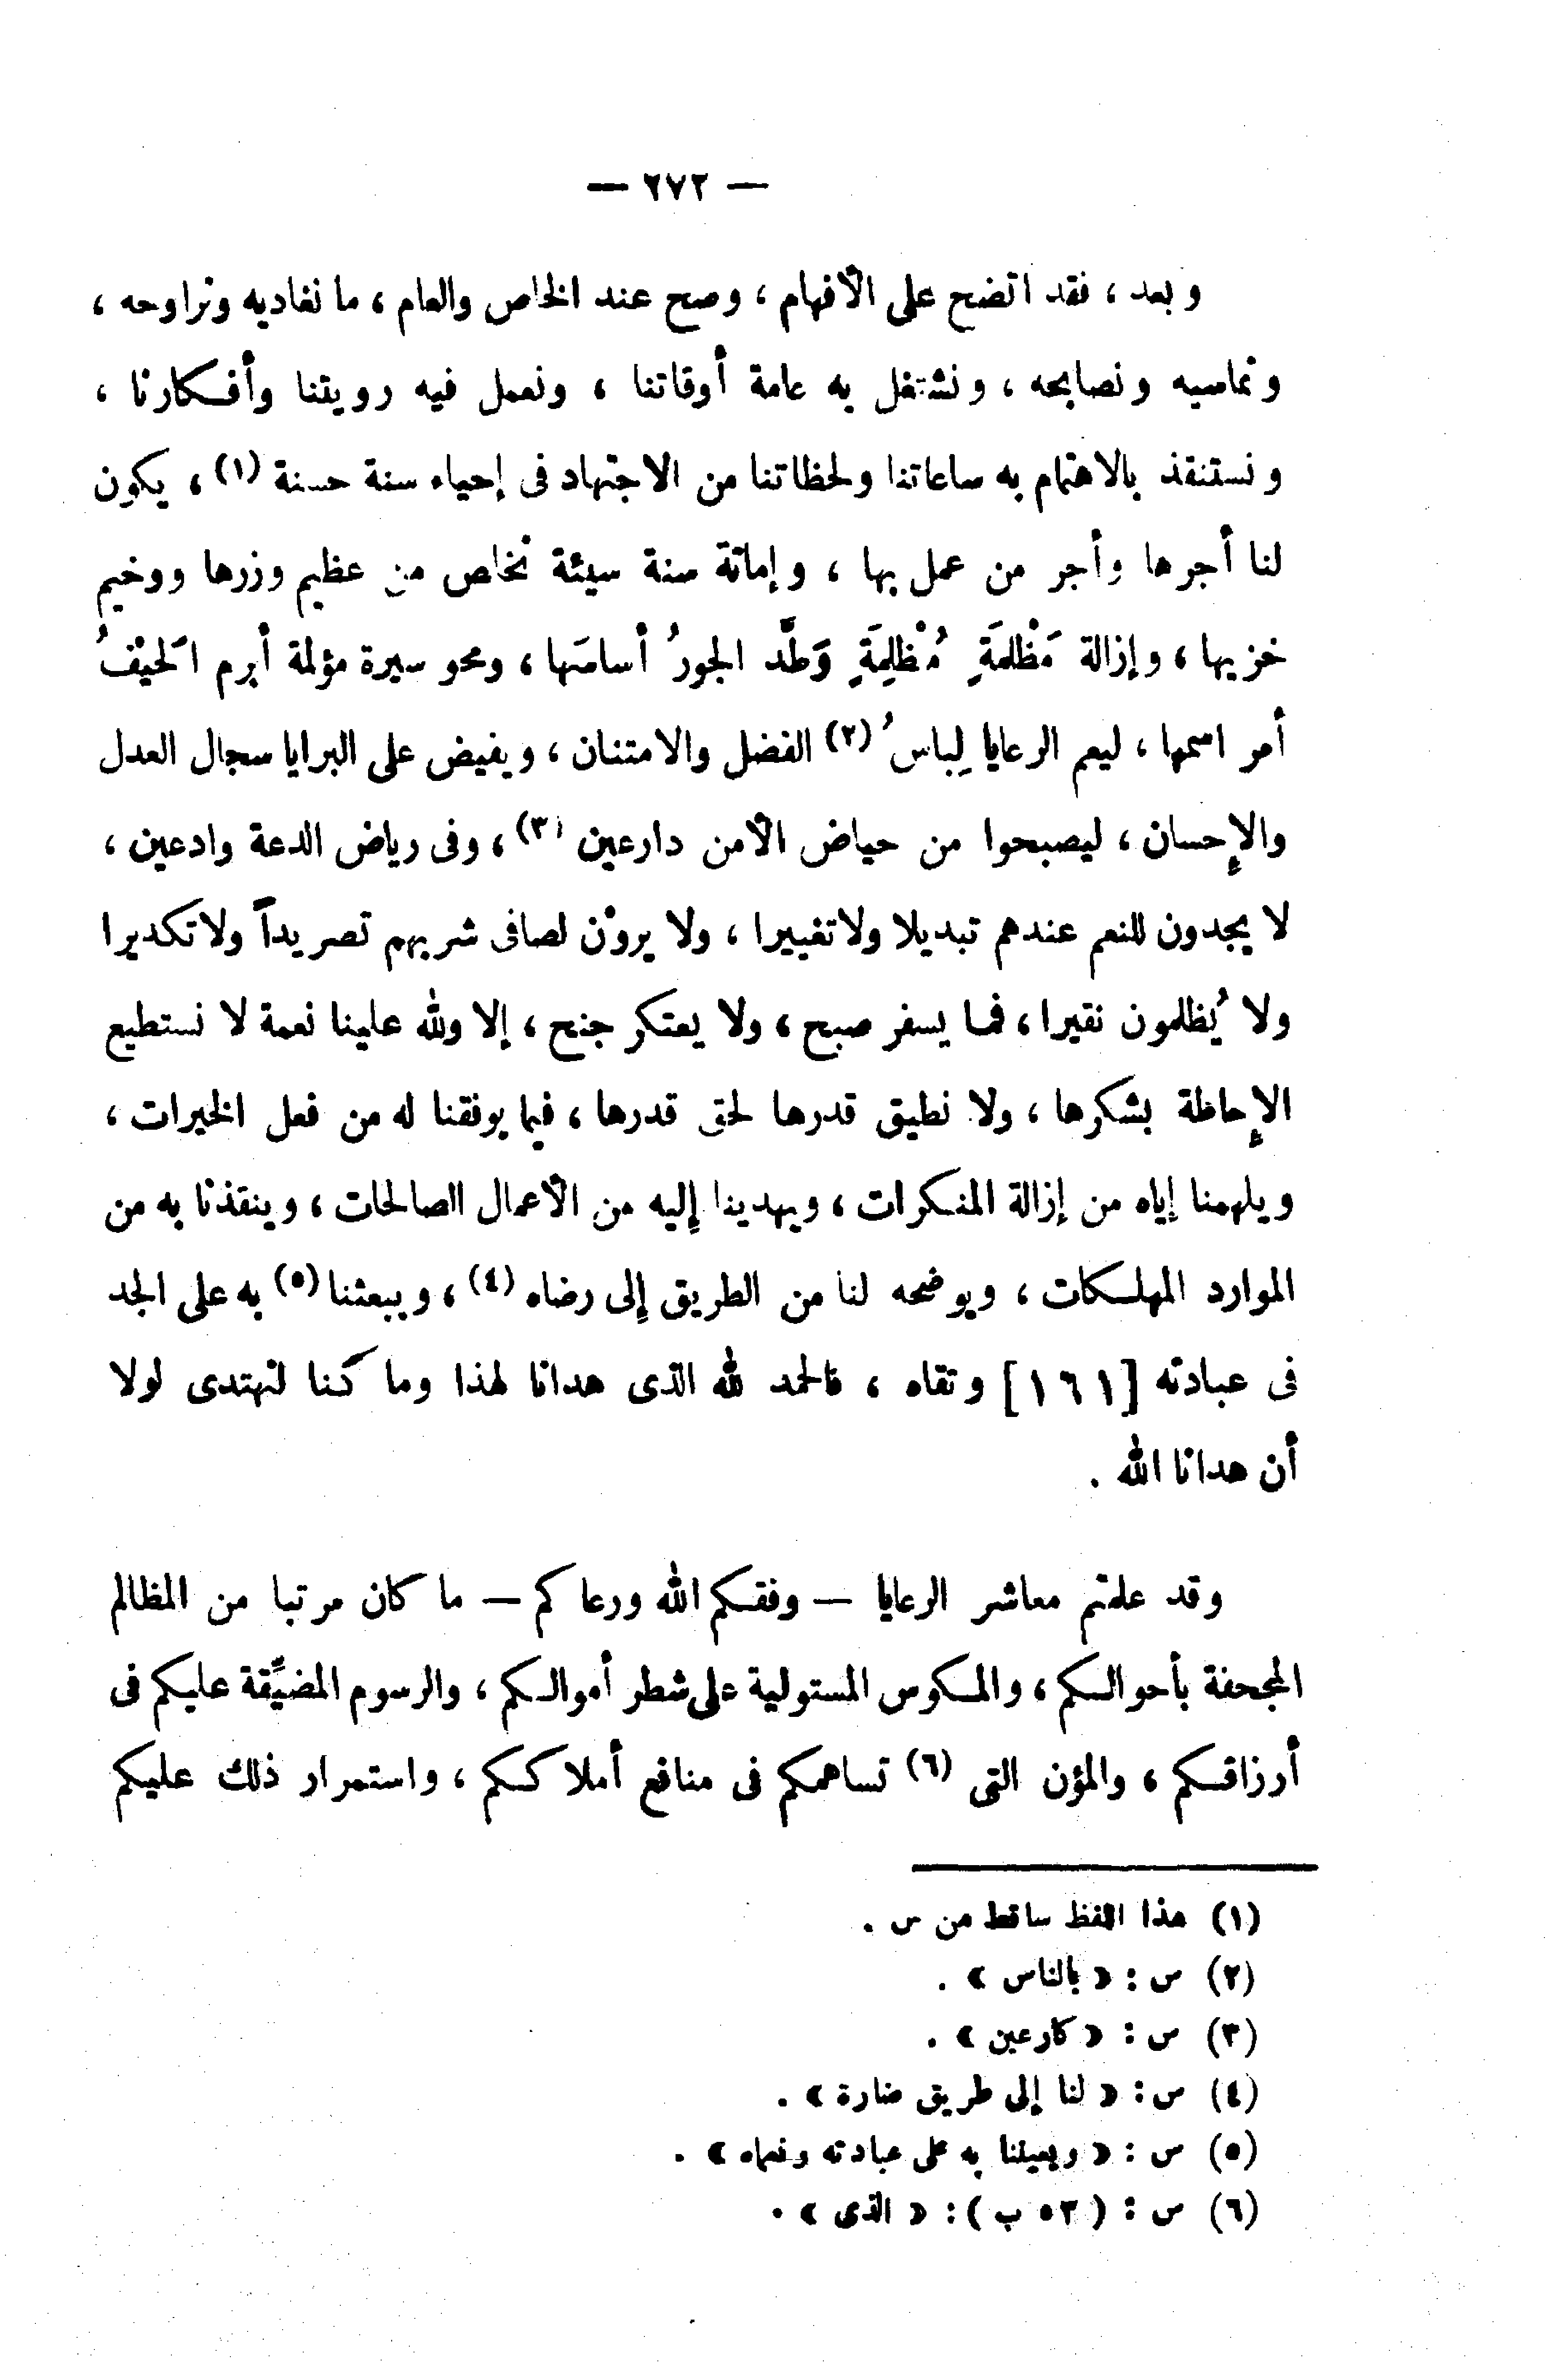 — ٢٧٢ —
وبعد ، فقد اتضح على الأفهام ، وصح عند الخاص والعام ، ما نغاديه ونراوحه ،
ونماسيه ونصابحه ، ونشتغل به عامة أوقاتنا ، ونعمل فيه رويتنا وأفكارنا ،
ونستنقذ بالاهتمام به ساعاتنا ولحظاتنا من الاجتهاد فى إحياء سنة حسنة (١) ، يكون
لنا أجرها وأجر من عمل بها ، وإماتة سنة سيئة نخلص من عظيم وزرها ووخيم
خزيها ، وإزالة مَظْلمَةٍ مُظْلِمَةٍ وَطَّد الجورُ أساسَها ، ومحو سيرة مؤلمة أبرم الَحيْفُ
أمر اسمها ، ليعم الرعايا لِباسُ (٢) الفضل والامتنان ، ويفيض على البرايا سجال العدل
والإحسان ، ليصبحوا من حياض الأمن دارعين (٣) ، وفى رياض الدعة وادعين ،
لا يجدون للنعم عندهم تبديلا ولا تغييرا ، ولا يروْن لصافى شربهم تصريداً ولا تكديرا
ولا يُظلمون نقيرا ، فما يسفر صبح ، ولا يعتكر جنح ، إلا ولله علينا نعمة لا نستطيع
الإحاطة بشكرها ، ولا نطيق قدرها لحق قدرها ، فيما يوفقنا له من فعل الخيرات ،
ويلهمنا إياه من إزالة المنكرات ، ويهدينا إليه من الأعمال الصالحات ، وينقذنا به من
الموارد المهلكات ، ويوضحه لنا من الطريق إلى رضاه (٤) ، ويبعثنا (٥) به على الجد
فى عبادته [١٦١] وتقاه ، فالحمد لله الذى هدانا لهذا وما كنا لنهتدى لولا
أن هدانا الله .
وقد علمتم معاشر الرعايا — وفقكم الله ورعاكم — ما كان مرتبا من المظالم
المجحفة بأحوالكم ، والمكوس المستولية على شطر أموالكم ، والرسوم المضيِّقة عليكم فى
أرزاقكم ، والمؤن التى (٦) تساهمكم فى منافع أملاككم ، واستمرار ذلك عليكم
(١) هذا اللفظ ساقط من س .
(٢) س : « بالناس » .
(٣) س : « كارعين » .
(٤) س : « لنا إلى طريق ضارة » .
(٥) س : « ويعيننا به على عبادته ونعماه » .
(٦) س : ( ٥٣ ب ) : « الذى » .